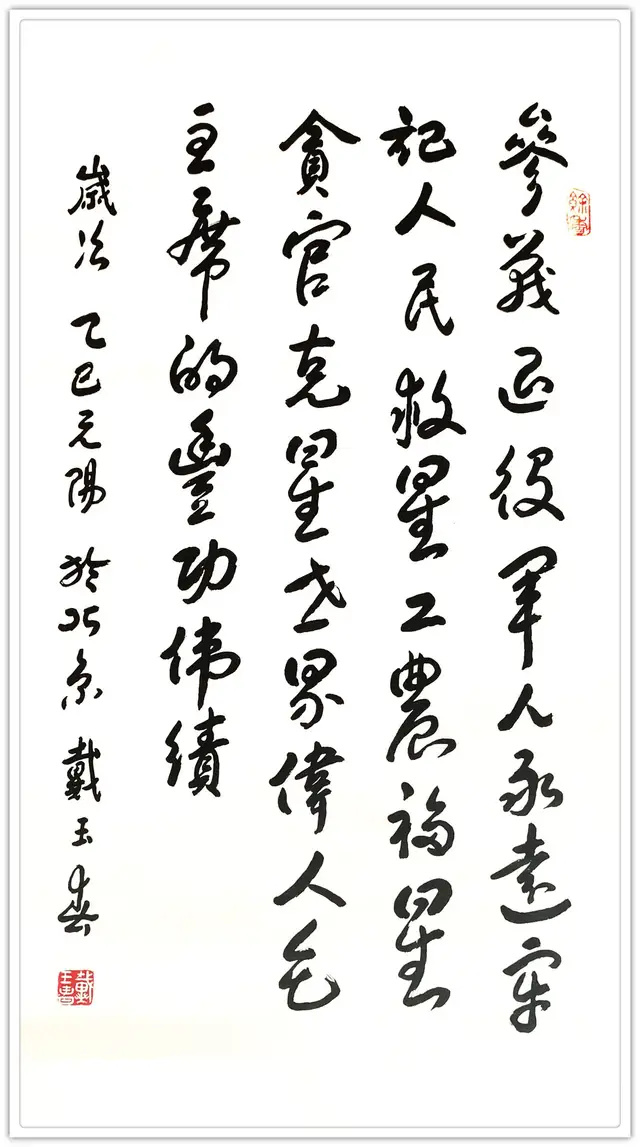 參義退役军人永遠牢
记人民救星工農福星
貪官克星世界偉人毛
主席的豐功伟績
歲次乙巳元陽於北京戴玉春